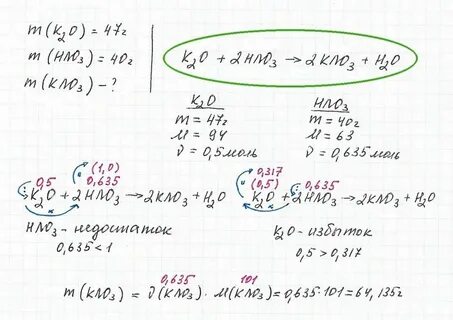 m(K₂O) = 47г
m(HNO₃) = 40г
m(KNO₃) - ?
K₂O + 2HNO₃ → 2KNO₃ + H₂O
K₂O
m = 47г
M = 94
ν = 0,5моль
HNO₃
m = 40г
M = 63
ν = 0,635моль
0,5 (1,0) 0,635
K₂O + 2HNO₃ → 2KNO₃ + H₂O
HNO₃ - недостаток
0,635 < 1
0,317 (0,5) 0,635
K₂O + 2HNO₃ → 2KNO₃ + H₂O
K₂O - избыток
0,5 > 0,317
0,635 101
m(KNO₃) = ν(KNO₃) · M(KNO₃) = 0,635 · 101 = 64,135г